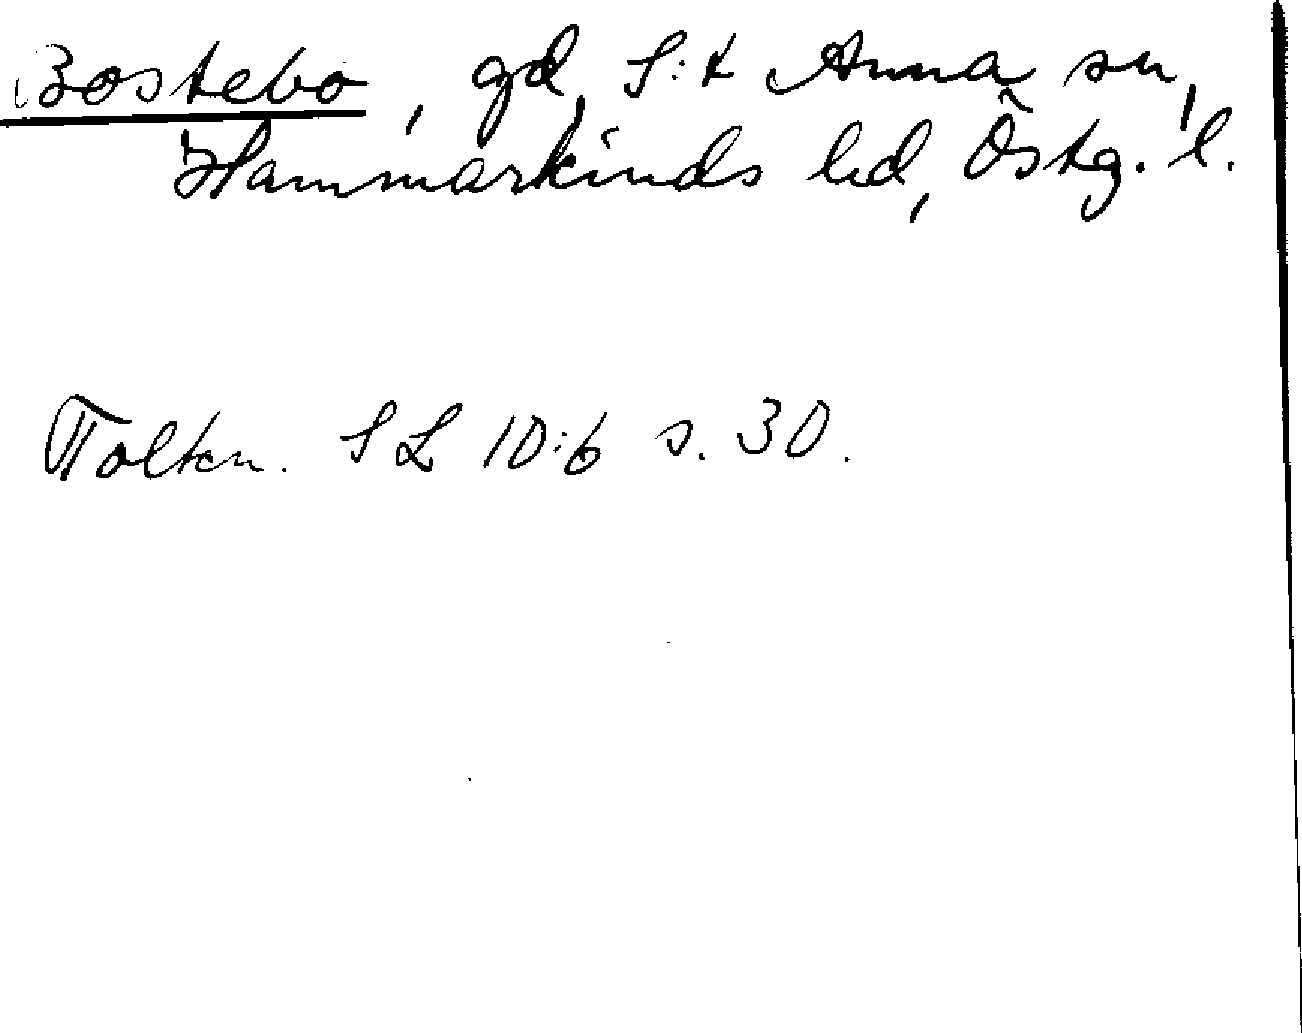 Bostebo, gd, S:t Anna sn,
Hammarkinds hd, Östg. l.
Tolkn. SL 10:6 s. 30.